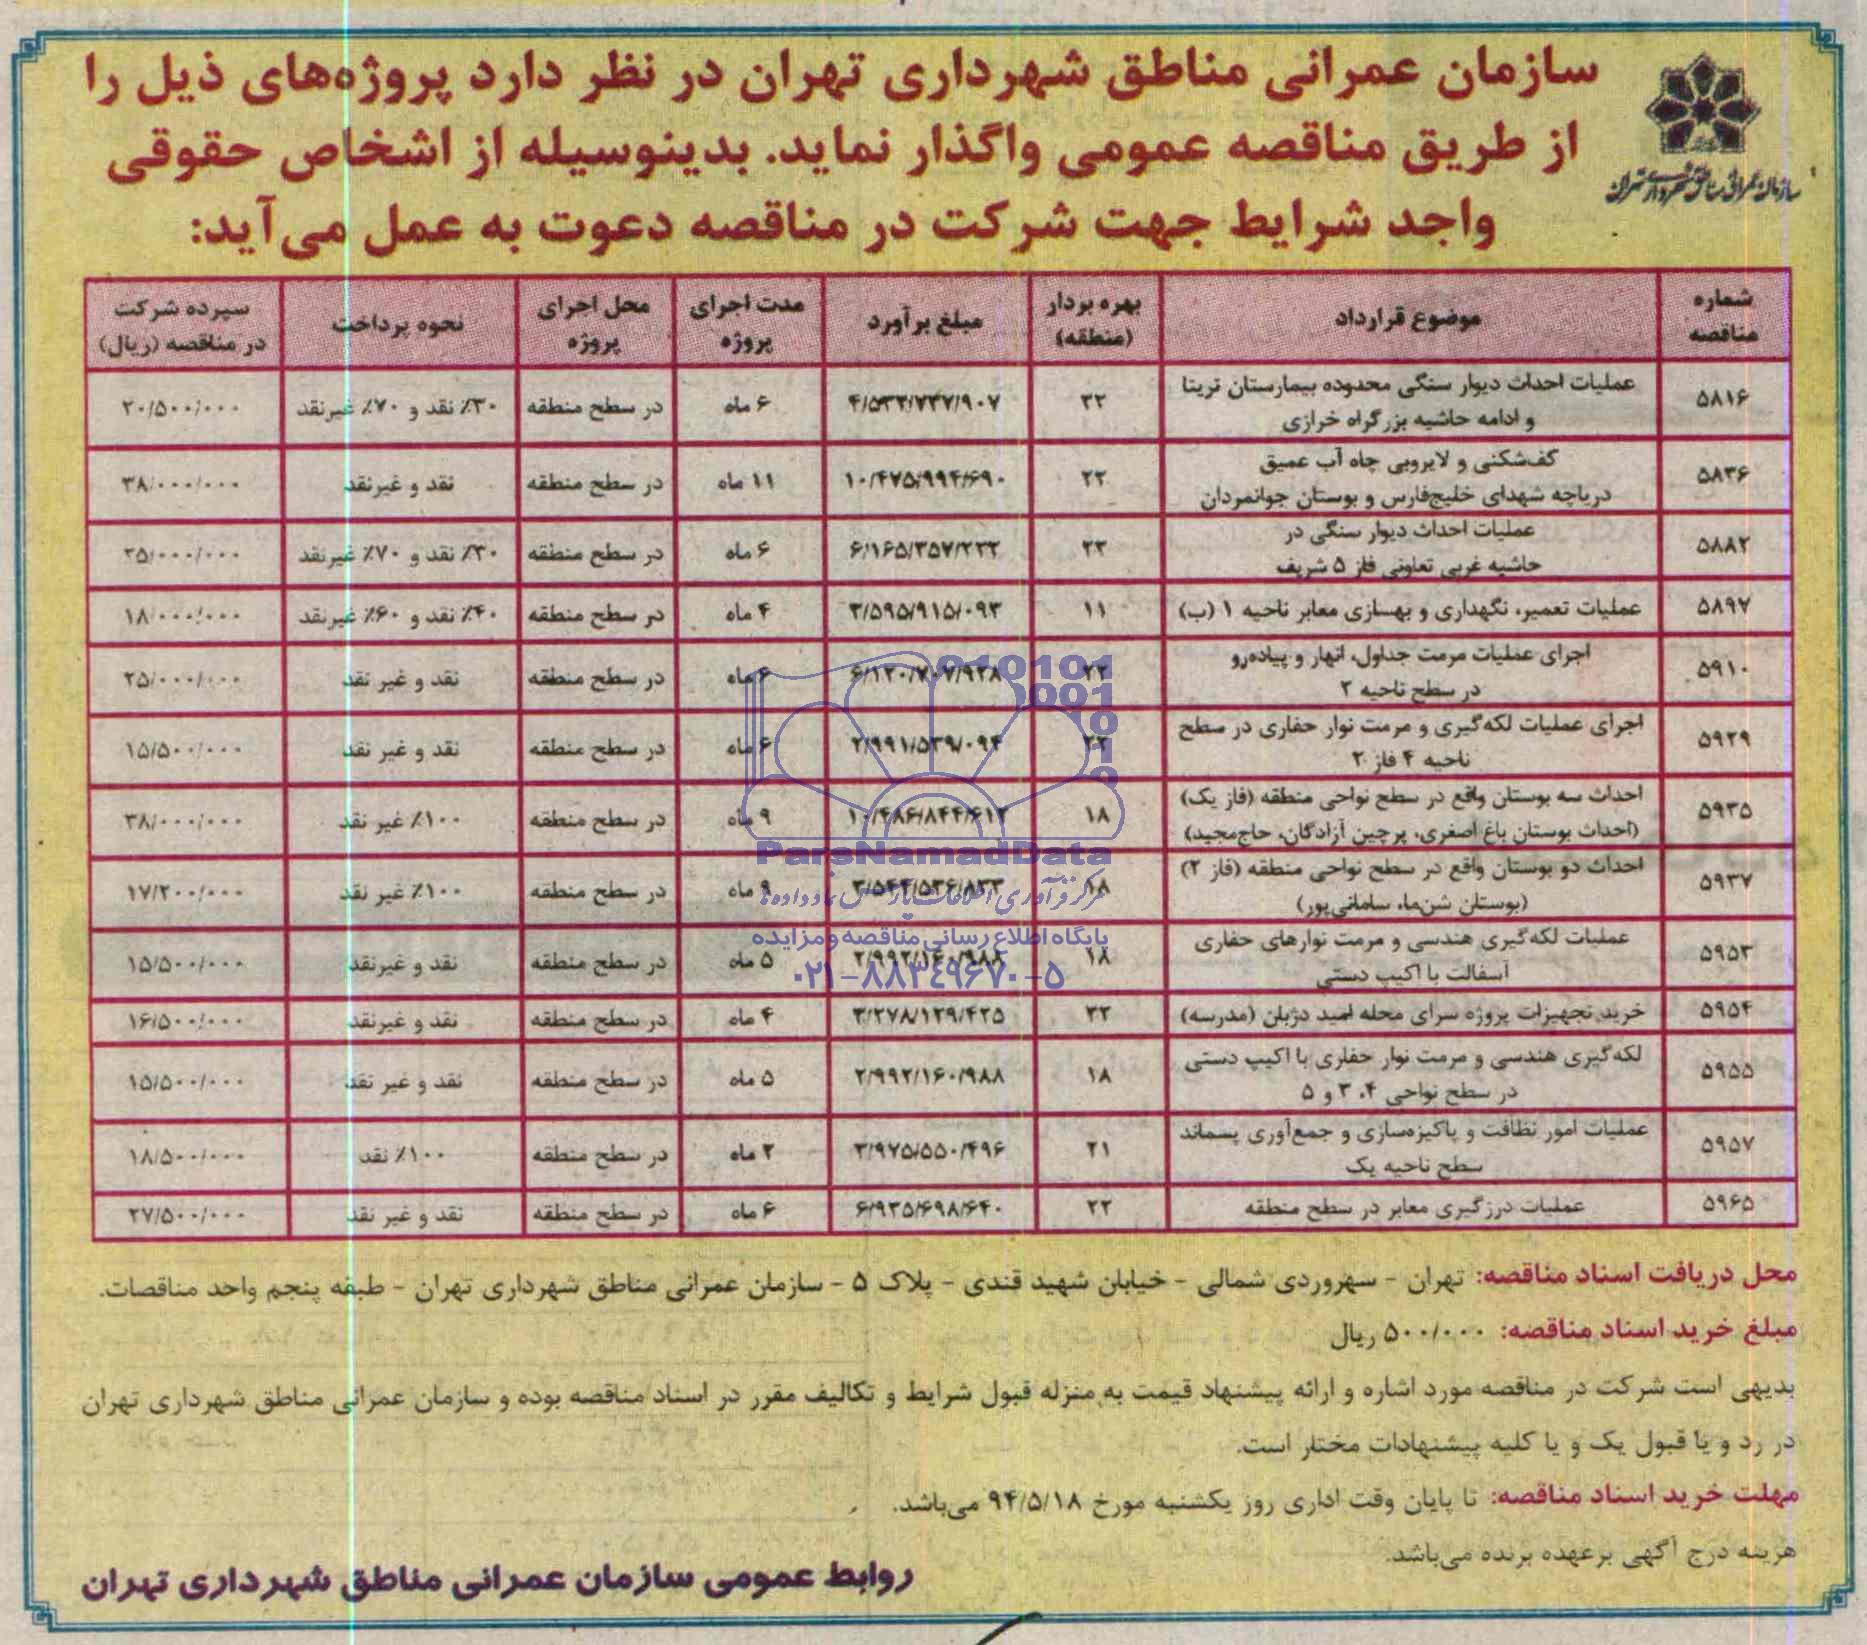 سازمان عمرانی مناطق شهرداری تهران در نظر دارد پروژه‌های ذیل را
از طریق مناقصه عمومی واگذار نماید. بدینوسیله از اشخاص حقوقی
واجد شرایط جهت شرکت در مناقصه دعوت به عمل می‌آید:
سازمان عمرانی مناطق شهرداری تهران
شماره مناقصه | موضوع قرارداد | بهره بردار (منطقه) | مبلغ برآورد | مدت اجرای پروژه | محل اجرای پروژه | نحوه پرداخت | سپرده شرکت در مناقصه (ریال)
۵۸۱۶ | عملیات احداث دیوار سنگی محدوده بیمارستان تریتا و ادامه حاشیه بزرگراه خرازی | ۲۲ | ۶ ماه | در سطح منطقه | ۳۰٪ نقد و ۷۰٪ غیرنقد | ۲۰/۵۰۰/۰۰۰
۵۸۳۶ | کف‌شکنی و لایروبی چاه آب عمیق دریاچه شهدای خلیج‌فارس و بوستان جوانمردان | ۲۲ | ۱۰/۴۷۵/۹۹۴/۶۹۰ | ۱۱ ماه | در سطح منطقه | نقد و غیرنقد | ۳۸/۰۰۰/۰۰۰
۵۸۸۲ | عملیات احداث دیوار سنگی در حاشیه غربی تعاونی فاز ۵ شریف | ۲۲ | ۶ ماه | در سطح منطقه | ۳۰٪ نقد و ۷۰٪ غیرنقد | ۲۵/۰۰۰/۰۰۰
۵۸۹۷ | عملیات تعمیر، نگهداری و بهسازی معابر ناحیه ۱ (ب) | ۱۱ | ۳/۵۹۵/۹۱۵/۰۹۳ | ۴ ماه | در سطح منطقه | ۴۰٪ نقد و ۶۰٪ غیرنقد | ۱۸/۰۰۰/۰۰۰
۵۹۱۰ | اجرای عملیات مرمت جداول، انهار و پیاده‌رو در سطح ناحیه ۲ | ۲۲ | ۶ ماه | در سطح منطقه | نقد و غیر نقد | ۲۵/۰۰۰/۰۰۰
۵۹۲۹ | اجرای عملیات لکه‌گیری و مرمت نوار حفاری در سطح ناحیه ۴ فاز ۲ | ۲۲ | ۲/۹۹۱/۵۳۹/۰۹۴ | ۶ ماه | در سطح منطقه | نقد و غیر نقد | ۱۵/۵۰۰/۰۰۰
۵۹۳۵ | احداث سه بوستان واقع در سطح نواحی منطقه (فاز یک) (احداث بوستان باغ اصغری، پرچین آزادگان، حاج‌مجید) | ۱۸ | ۱۰/۴۸۶/۸۴۴/۶۱۲ | ۹ ماه | در سطح منطقه | ۱۰۰٪ غیر نقد | ۳۸/۰۰۰/۰۰۰
۵۹۳۷ | احداث دو بوستان واقع در سطح نواحی منطقه (فاز ۲) (بوستان شن‌ما، سامانی‌پور) | ۱۸ | ۹ ماه | در سطح منطقه | ۱۰۰٪ غیر نقد | ۱۷/۲۰۰/۰۰۰
۵۹۵۳ | عملیات لکه‌گیری هندسی و مرمت نوارهای حفاری آسفالت با اکیپ دستی | ۱۸ | ۲/۹۹۲/۱۶۰/۹۸۸ | ۵ ماه | در سطح منطقه | نقد و غیرنقد | ۱۵/۵۰۰/۰۰۰
۵۹۵۴ | خرید تجهیزات پروژه سرای محله امید دژبان (مدرسه) | ۲۲ | ۳/۲۷۸/۱۲۹/۴۲۵ | ۴ ماه | در سطح منطقه | نقد و غیرنقد | ۱۶/۵۰۰/۰۰۰
۵۹۵۵ | لکه‌گیری هندسی و مرمت نوار حفاری با اکیپ دستی در سطح نواحی ۴، ۳ و ۵ | ۱۸ | ۲/۹۹۲/۱۶۰/۹۸۸ | ۵ ماه | در سطح منطقه | نقد و غیر نقد | ۱۵/۵۰۰/۰۰۰
۵۹۵۷ | عملیات امور نظافت و پاکیزه‌سازی و جمع‌آوری پسماند سطح ناحیه یک | ۲۱ | ۳/۹۷۵/۵۵۰/۴۹۶ | ۲ ماه | در سطح منطقه | ۱۰۰٪ نقد | ۱۸/۵۰۰/۰۰۰
۵۹۶۵ | عملیات درزگیری معابر در سطح منطقه | ۲۲ | ۶/۹۲۵/۶۹۸/۶۴۰ | ۶ ماه | در سطح منطقه | نقد و غیر نقد | ۲۷/۵۰۰/۰۰۰
ParsNamadData
مرکز فرآوری اطلاعات پارس نماد داده‌ها
پایگاه اطلاع رسانی مناقصه و مزایده
۰۲۱-۸۸۳۴۹۶۷۰-۵
محل دریافت اسناد مناقصه: تهران - سهروردی شمالی - خیابان شهید قندی - پلاک ۵ - سازمان عمرانی مناطق شهرداری تهران - طبقه پنجم واحد مناقصات.
مبلغ خرید اسناد مناقصه: ۵۰۰/۰۰۰ ریال
بدیهی است شرکت در مناقصه مورد اشاره و ارائه پیشنهاد قیمت به منزله قبول شرایط و تکالیف مقرر در اسناد مناقصه بوده و سازمان عمرانی مناطق شهرداری تهران
در رد و یا قبول یک و یا کلیه پیشنهادات مختار است.
مهلت خرید اسناد مناقصه: تا پایان وقت اداری روز یکشنبه مورخ ۹۴/۵/۱۸ می‌باشد.
هزینه درج آگهی برعهده برنده می‌باشد.
روابط عمومی سازمان عمرانی مناطق شهرداری تهران